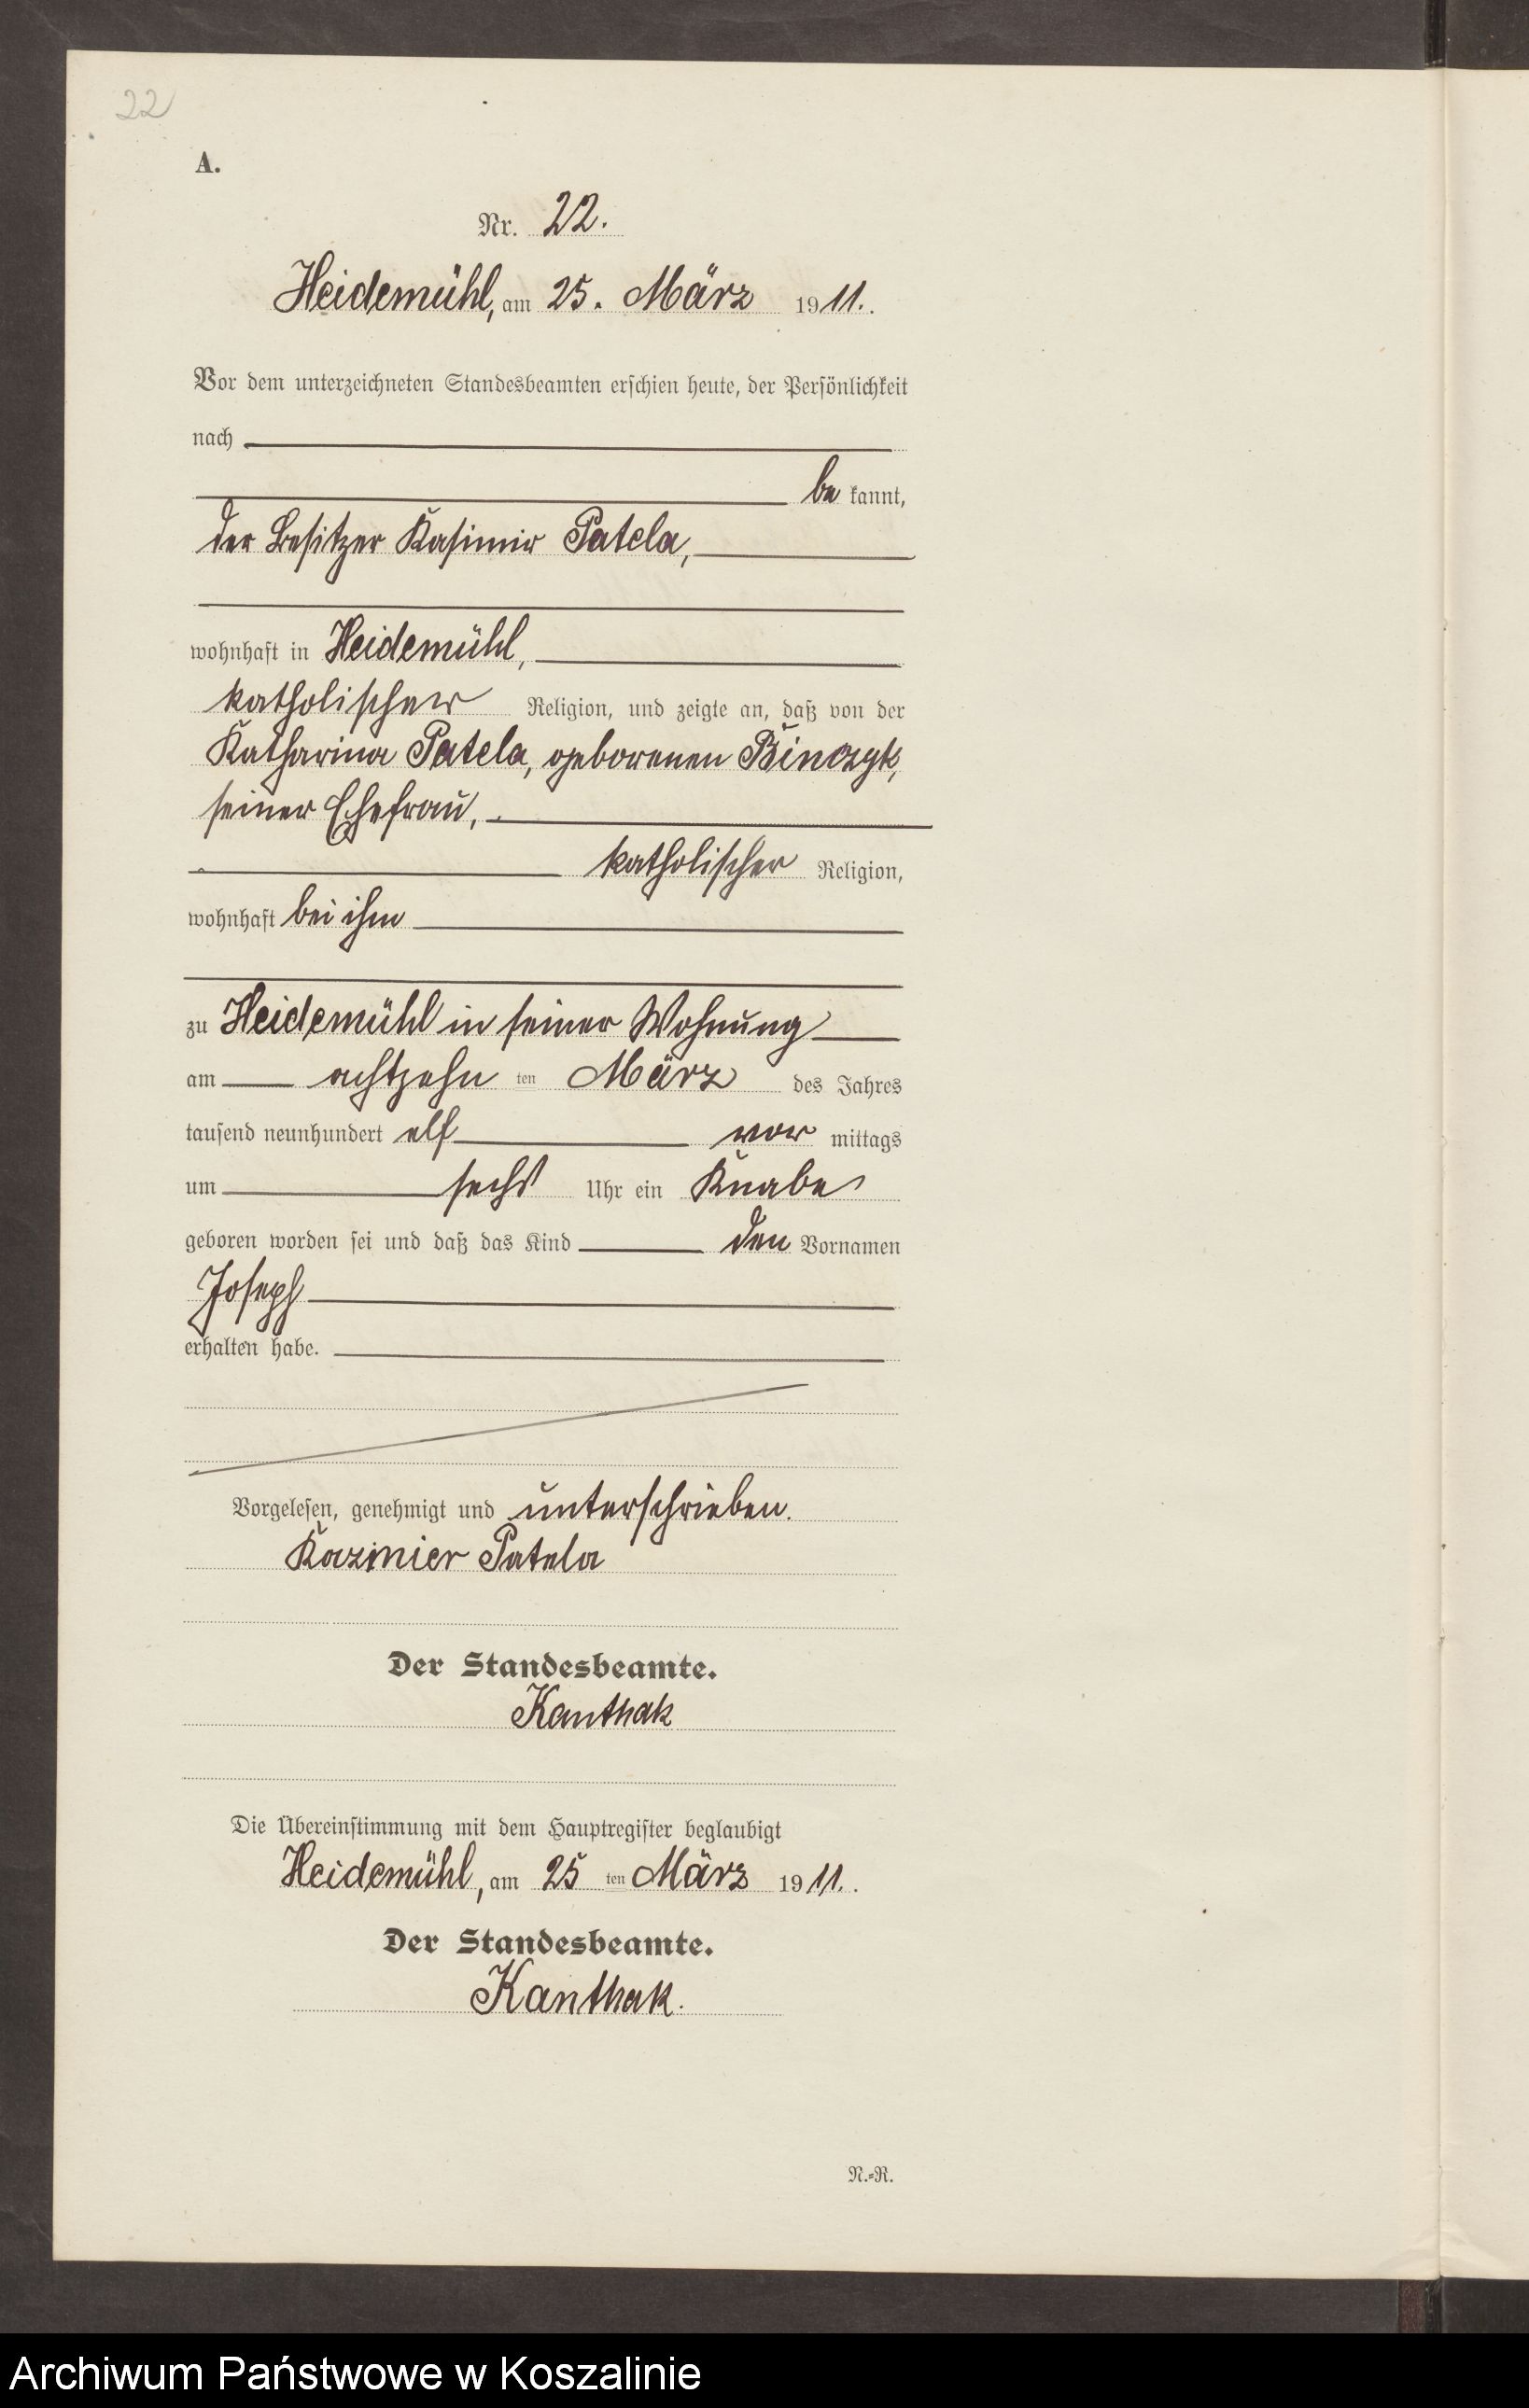 22
A.
Nr. 22.
Heidemühl, am 25. März 1911.
Vor dem unterzeichneten Standesbeamten erschien heute, der Persönlichkeit
nach
be kannt,
der Besitzer Kasimir Patela,
wohnhaft in Heidemühl,
katholischer Religion, und zeigte an, daß von der
Katharina Patela, geborenen Binczyk,
seiner Ehefrau,
katholischer Religion,
wohnhaft bei ihm
zu Heidemühl in seiner Wohnung
am achtzehn ten März des Jahres
tausend neunhundert elf vor mittags
um sechs Uhr ein Knabe
geboren worden sei und daß das Kind den Vornamen
Joseph
erhalten habe.
Vorgelesen, genehmigt und unterschrieben.
Kazimier Patela
Der Standesbeamte.
Kanthak
Die Übereinstimmung mit dem Hauptregister beglaubigt
Heidemühl, am 25 ten März 1911.
Der Standesbeamte.
Kanthak.
N.-R.
Archiwum Państwowe w Koszalinie